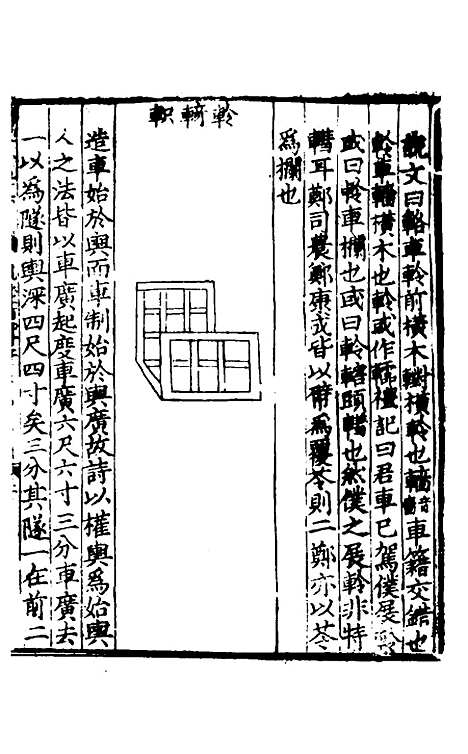 說文曰輅車軨前橫木轛橫軨也轖音嗇車籍交錯也
軨車轖橫木也軨或作轜禮記曰君車已駕僕展軨
或曰軨車欄也或曰軨轄頭轊也然僕之展軨非特
轊耳鄭司農鄭康成皆以幦為覆苓則二鄭亦以苓
為欄也
軨輢軹
造車始於輿而車制始於輿廣故詩以權輿為始輿
人之法皆以車廣起度車廣六尺六寸三分車廣去
一以為隧則輿深四尺四寸矣三分其隧一在前二